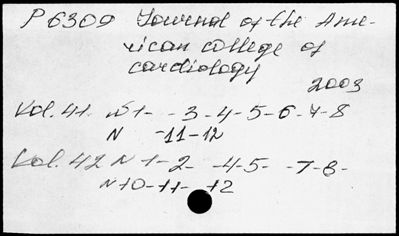 P6309 Journal of the Ame-
rican college of
cardiology
2003
Vol. 41. N 1- -3-4-5-6-7-8
N -11-12
Vol. 42 N 1-2- -4-5- -7-8-
N 10-11- 12